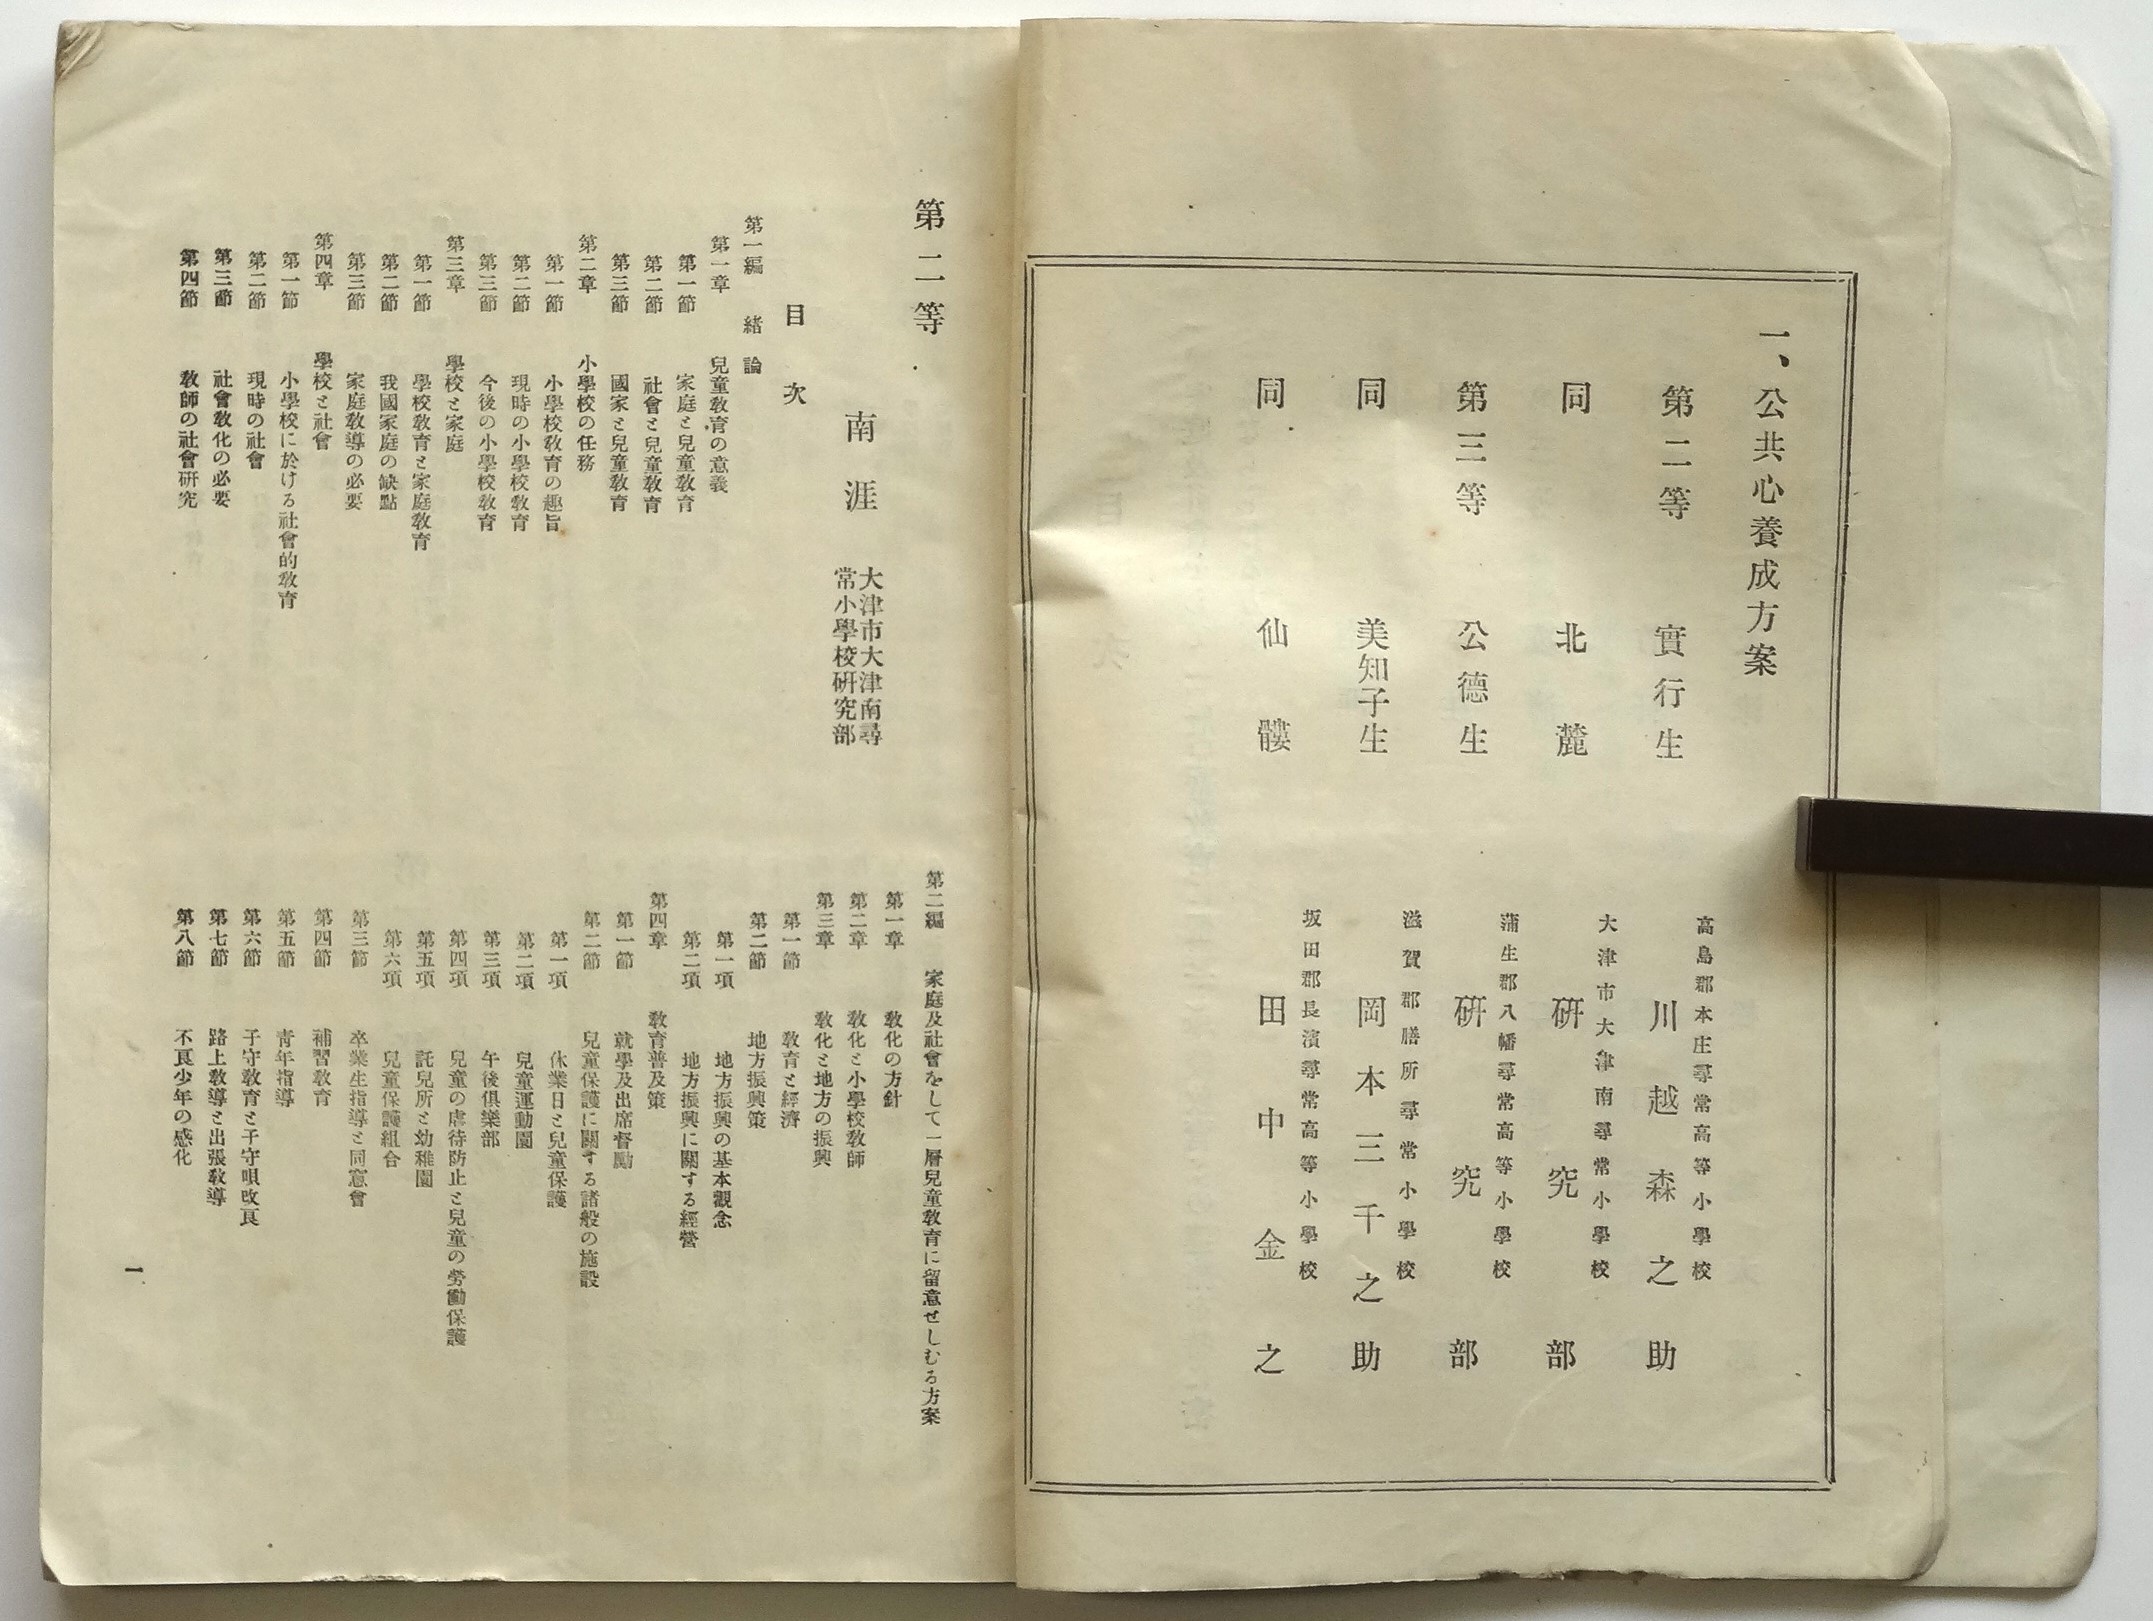 一、公共心養成方案
第二等 實行生 高島郡本庄尋常高等小學校 川越森之助
同 北麓 大津市大津南尋常小學校 研究部
第三等 公德生 蒲生郡八幡尋常高等小學校 研究部
同 美知子生 滋賀郡膳所尋常小學校 岡本三千之助
同 仙髏 坂田郡長濱尋常高等小學校 田中金之
第二等
南涯 大津市大津南尋常小學校研究部
目次
第一編 緒論
第一章 兒童教育の意義
第一節 家庭と兒童教育
第二節 社會と兒童教育
第三節 國家と兒童教育
第二章 小學校の任務
第一節 小學校教育の趣旨
第二節 現時の小學校教育
第三節 今後の小學校教育
第三章 學校と家庭
第一節 學校教育と家庭教育
第二節 我國家庭の缺點
第三節 家庭教導の必要
第四章 學校と社會
第一節 小學校に於ける社會的教育
第二節 現時の社會
第三節 社會教化の必要
第四節 教師の社會研究
第二編 家庭及社會をして一層兒童教育に留意せしむる方案
第一章 教化の方針
第二章 教化と小學校教師
第三章 教化と地方の振興
第一節 教育と經濟
第二節 地方振興策
第一項 地方振興の基本觀念
第二項 地方振興に關する經營
第四章 教育普及策
第一節 就學及出席督勵
第二節 兒童保護に關する諸般の施設
第一項 休業日と兒童保護
第二項 兒童運動園
第三項 午後俱樂部
第四項 兒童の虐待防止と兒童の勞働保護
第五項 託兒所と幼稚園
第六項 兒童保護組合
第三節 卒業生指導と同窓會
第四節 補習教育
第五節 青年指導
第六節 子守教育と子守唄改良
第七節 路上教導と出張教導
第八節 不良少年の感化
一